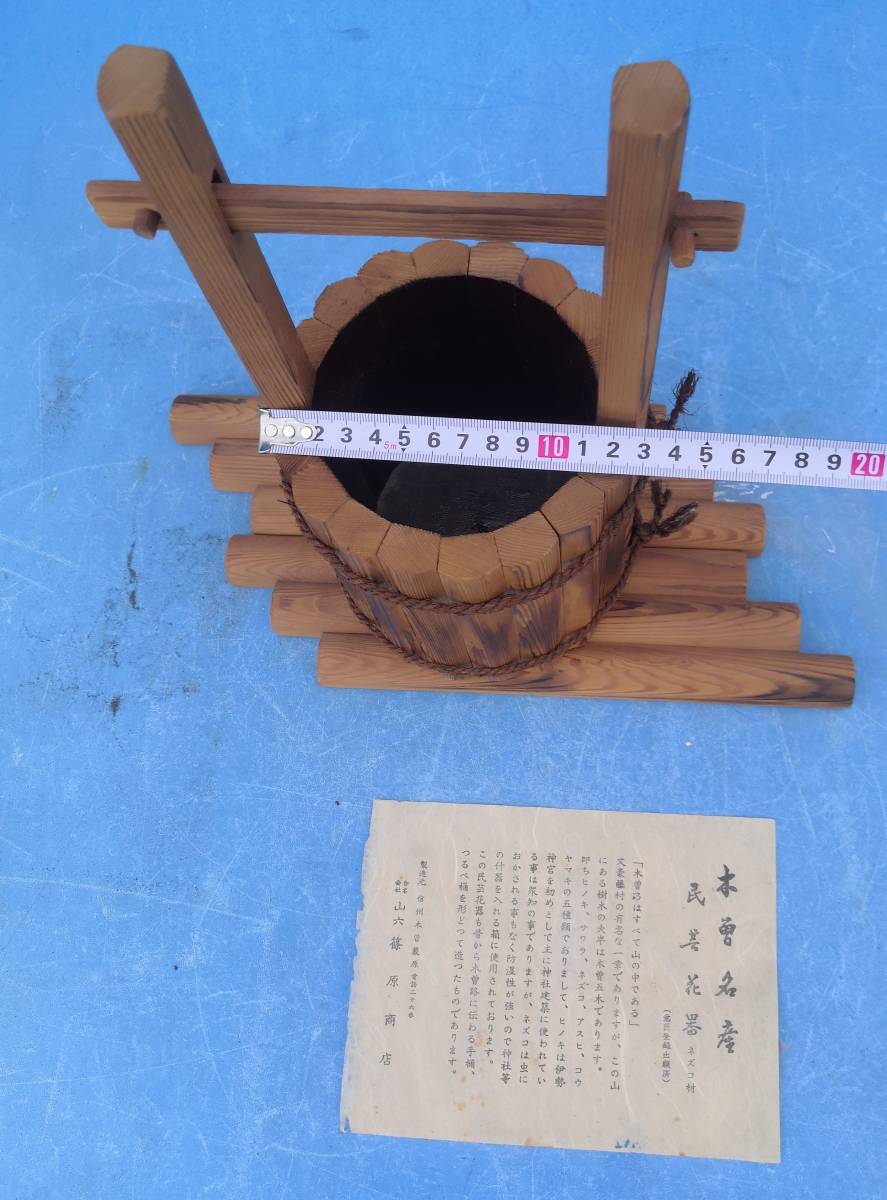 2 3 4 5 6 7 8 9 10 1 2 3 4 5 6 7 8 9 20
5m
木曽名産
民芸花器 ネズコ材
(意匠登録出願済)
「木曽路はすべて山の中である」
文豪藤村の有名な一章でありますが、この山
にある樹木の大半は木曽五木であります。
即ちヒノキ、サワラ、ネズコ、アスヒ、コウ
ヤマキの五種類でありまして、ヒノキは伊勢
神宮を初めとして主に神社建築に使われてい
る事は衆知の事でありますが、ネズコは虫に
おかされる事もなく防湿性が強いので神社等
の什器を入れる箱に使用されております。
この民芸花器も昔から木曽路に伝わる手桶、
つるべ桶を形どつて造つたものであります。
製造元 信州木曽薮原電話二十六番
合名会社 山六篠原商店